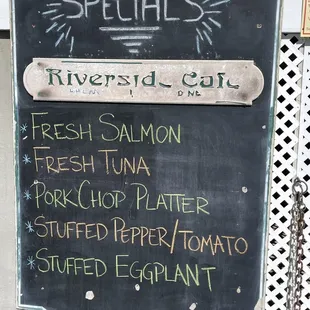 SPECIALS
Riverside Cafe
*FRESH SALMON
*FRESH TUNA
*PORK CHOP PLATTER
*STUFFED PEPPER/TOMATO
*STUFFED EGGPLANT